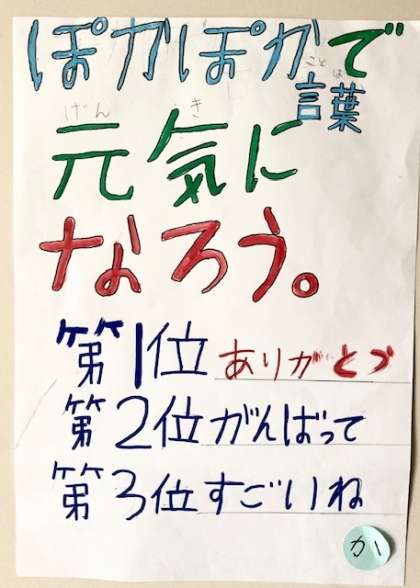 ぽかぽかで
ことば
言葉
げんき
元気に
なろう。
第1位ありがとう
第2位がんばって
第3位すごいね
か